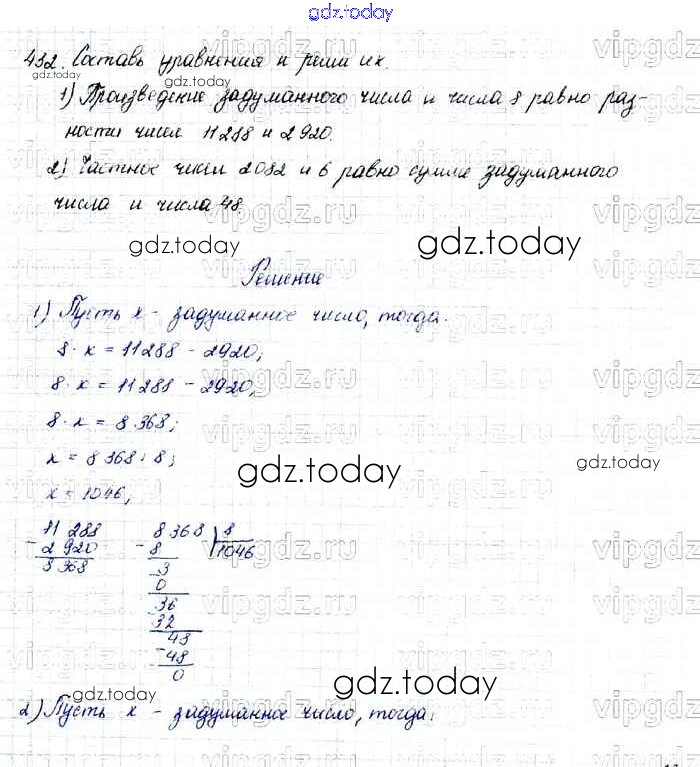 gdz.today
432. Составь уравнения и реши их.
gdz.today
1) Произведение задуманного числа и числа 8 равно раз-
ности чисел 11288 и 2920.
2) Частное чисел 2082 и 6 равно сумме задуманного
числа и числа 48.
gdz.today
gdz.today
Решение
1) Пусть x - задуманное число, тогда:
8 · x = 11288 - 2920;
8 · x = 11288 - 2920;
8 · x = 8368;
x = 8368 : 8;
x = 1046;
gdz.today
gdz.today
11 288
- 2 920
8 368
- 8368 | 8
8 1046
- 3
0
- 36
32
- 48
48
0
gdz.today
gdz.today
2) Пусть x - задуманное число, тогда:
vipgdz.ru